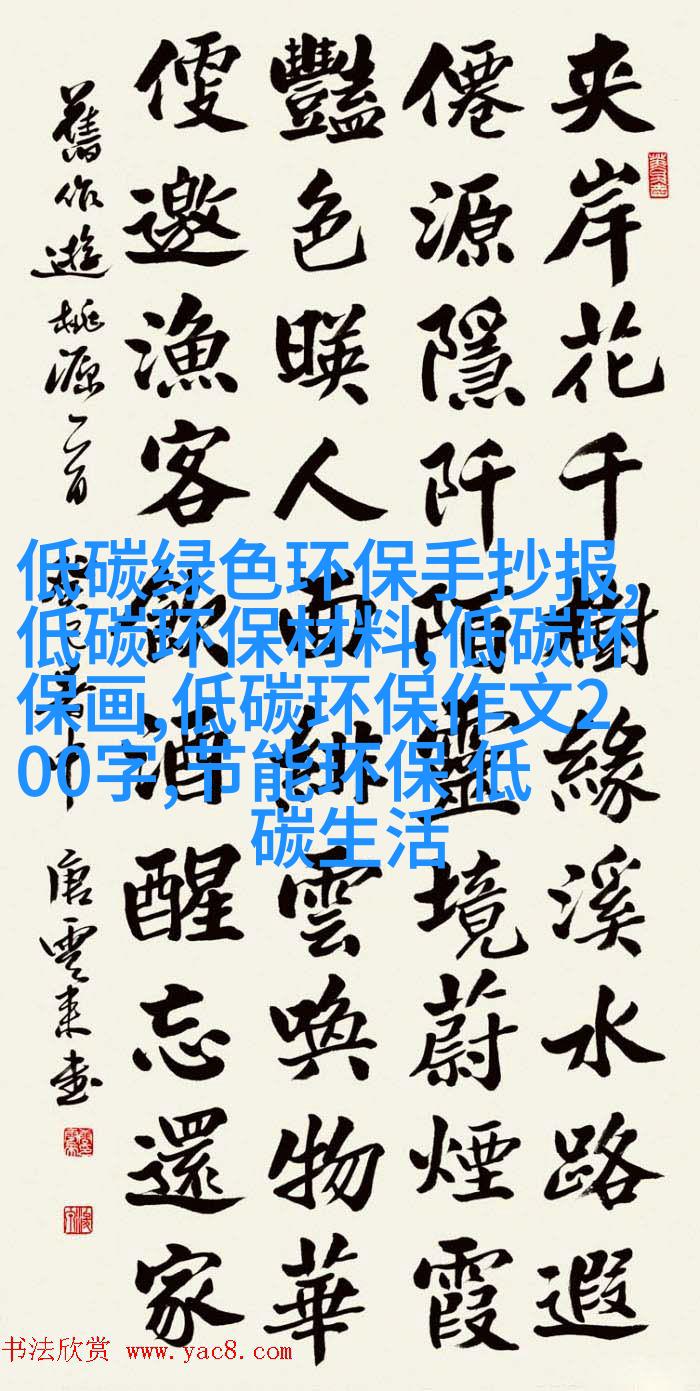 夾岸花千樹緣溪水路遐
僊源隱阡陌靈境蔚煙霞
豔色暎人面緋雲喚物華
便邀漁客酒醒忘還家
舊作遊桃源二首 中 唐雲來書
低碳绿色环保手抄报,
低碳环保材料,低碳环
保画,低碳环保作文2
00字,节能环保 低
碳生活
书法欣赏 www.yac8.com